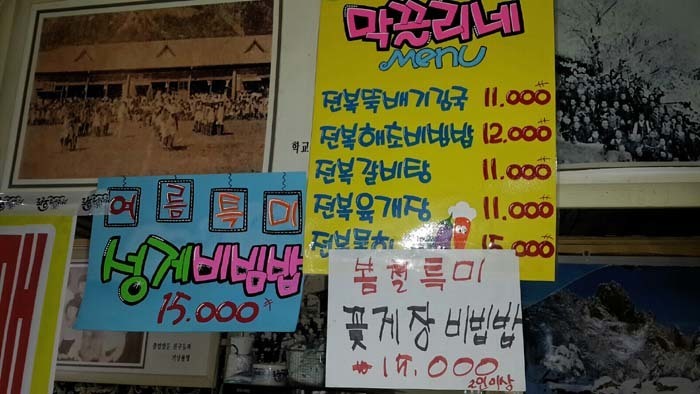 막끌리네
Menu
전복뚝배기김국 11.000
전복해초비빔밥 12.000
전복갈비탕 11.000
전복육개장 11.000
전복물회 15.000
여름특미
성게비빔밥
15.000
봄철특미
꽃게장비빔밥
15.000
2인이상
학교